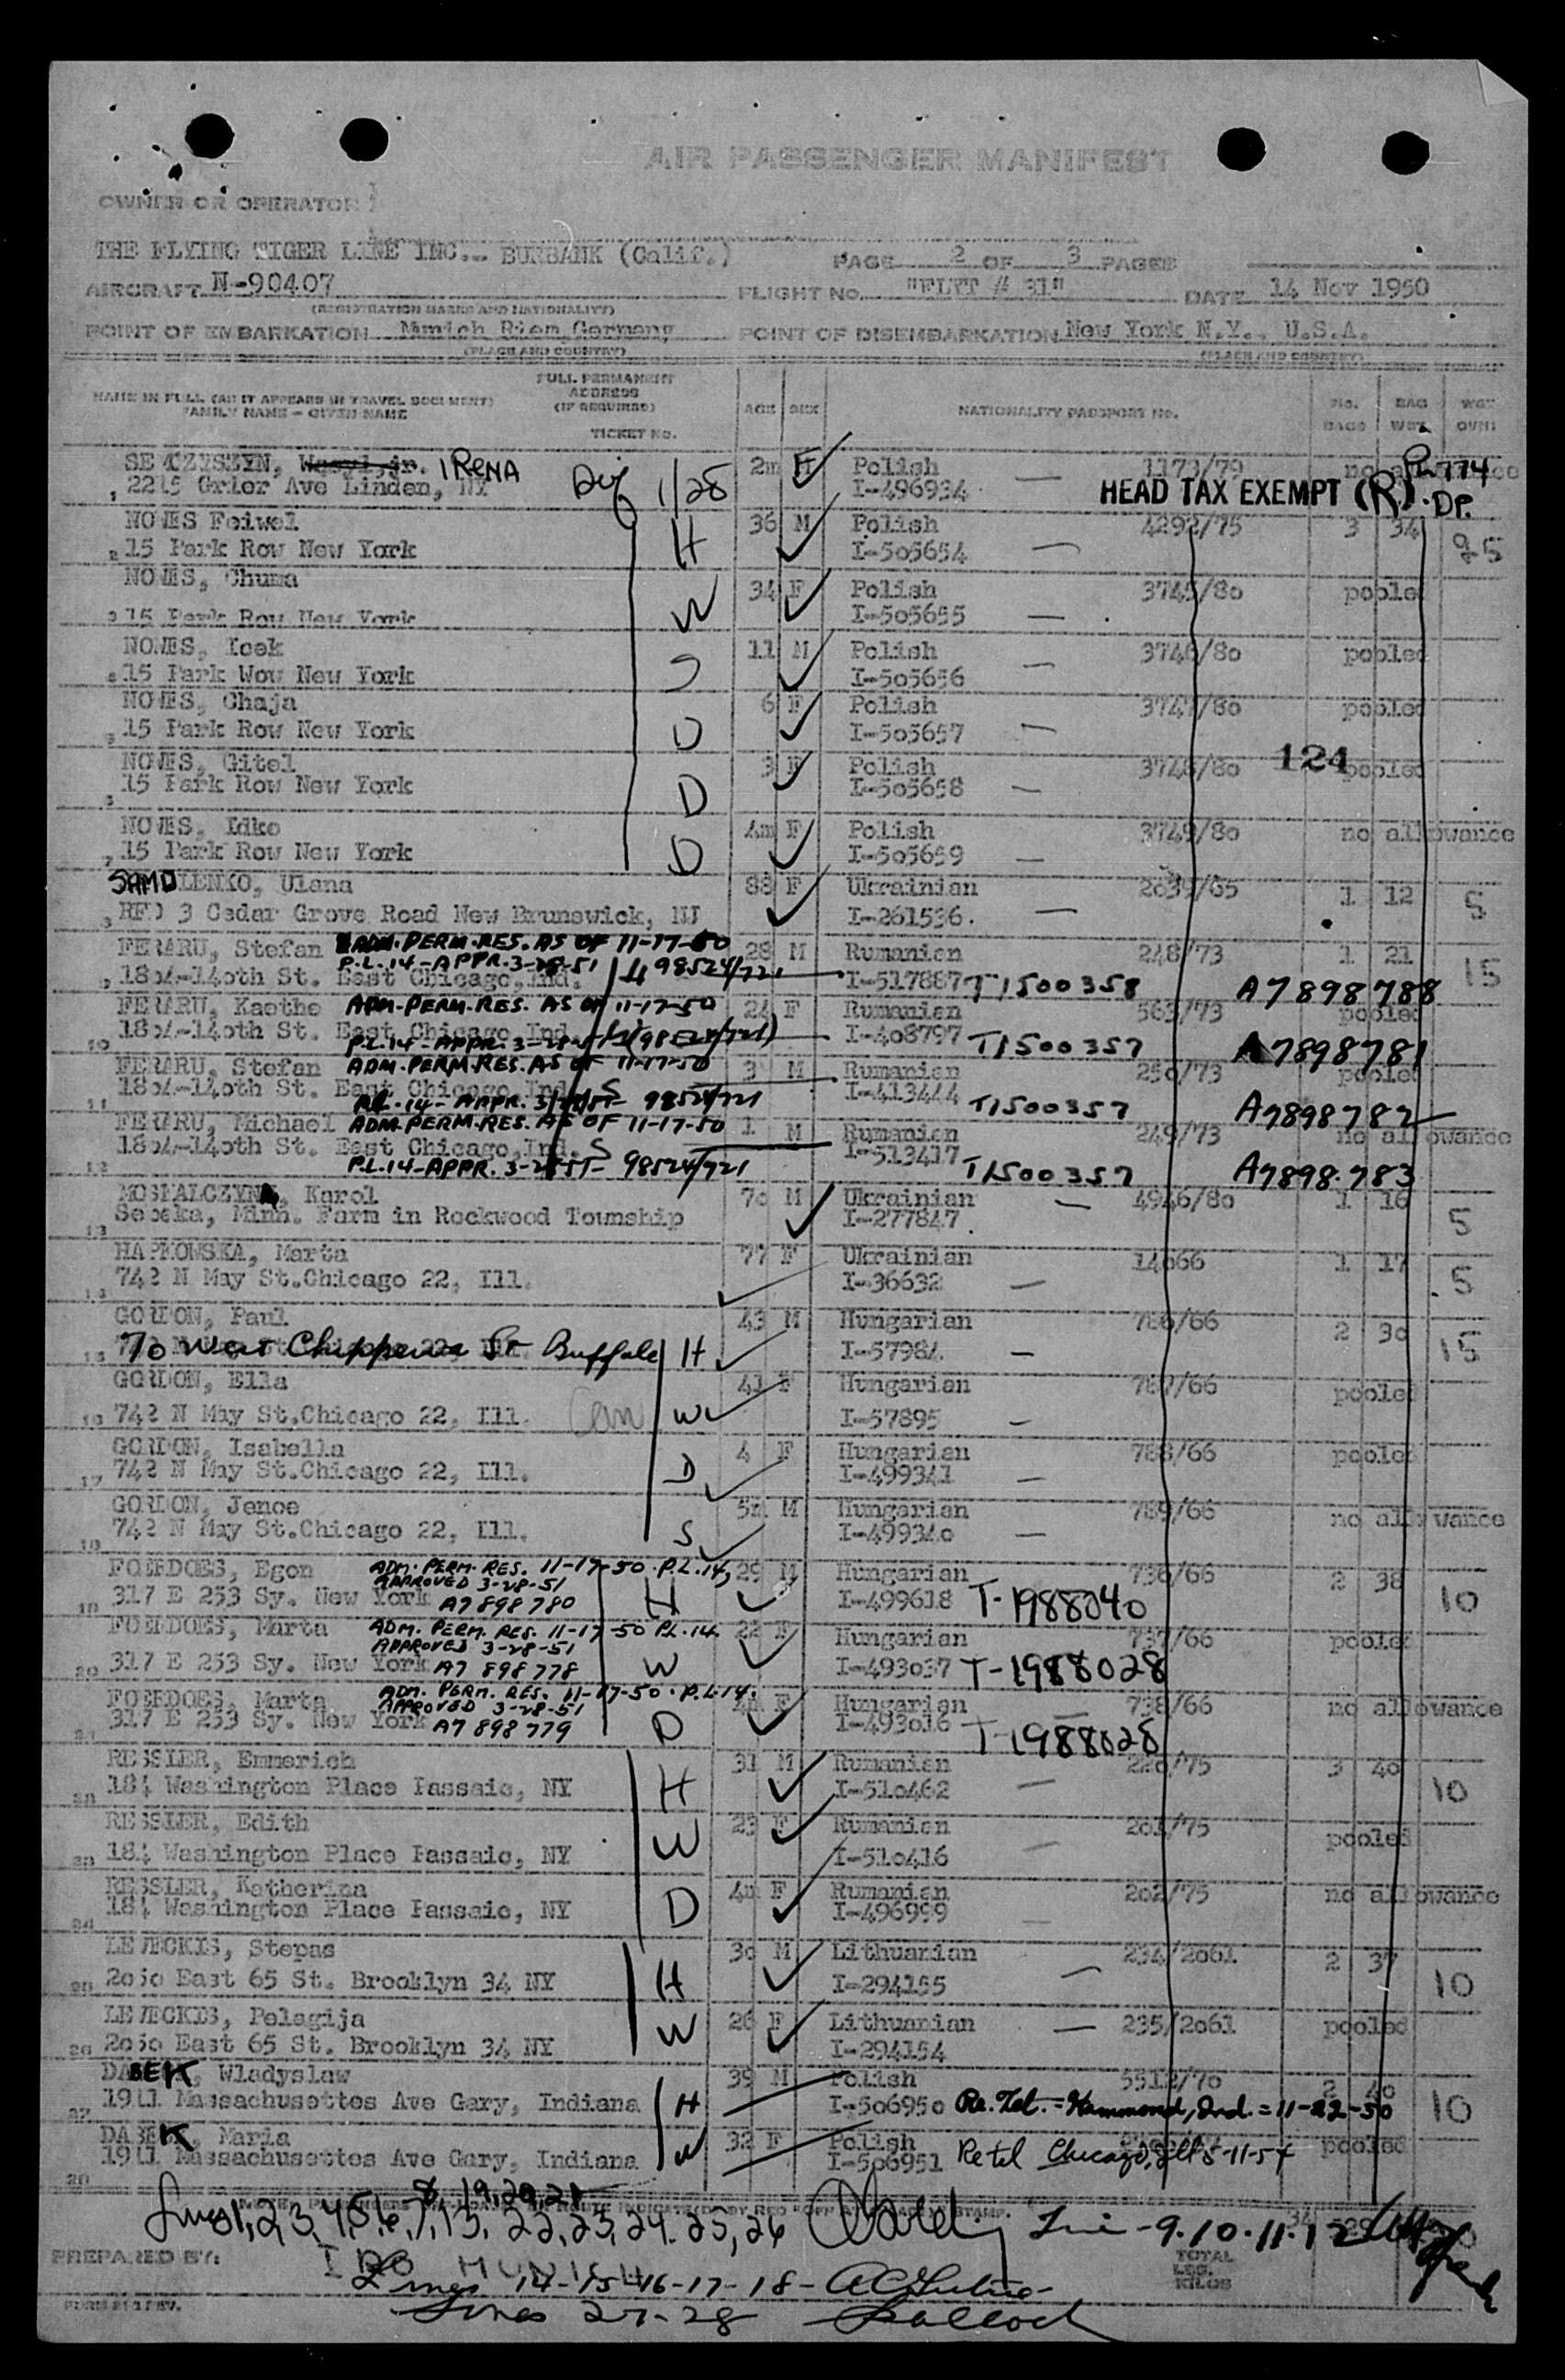 AIR PASSENGER MANIFEST
OWNER OR OPERATOR
THE FLYING TIGER LINE INC... BURBANK (Calif.) PAGE 2 OF 3 PAGES
AIRCRAFT N-90407 FLIGHT NO. "FLTT # 31" DATE 14 Nov 1950
(REGISTRATION MARKS AND NATIONALITY)
POINT OF EMBARKATION Munich Riem, Germany POINT OF DISEMBARKATION New York N.Y., U.S.A.
(PLACE AND COUNTRY) (PLACE AND COUNTRY)
NAME IN FULL (AS IT APPEARS IN TRAVEL DOCUMENT) FULL PERMANENT ADDRESS (IF REQUIRED) AGE SEX NATIONALITY PASSPORT No. No. BAGS BAG WGT.
FAMILY NAME - GIVEN NAME TICKET NO.
Wasyl, jr. IRENA 2m F Polish 1173/79 PL 774
1 2215 Grier Ave Linden, NY 1/28 I-496934 HEAD TAX EXEMPT (R). DP.
NOWES Feiwel 36 M Polish 4292/75 3 34
2 15 Park Row New York H I-505654 25
NOWES, Chuma 34 F Polish 3745/80 pooled
3 15 Park Row New York W I-505655
NOWES, Icek 11 M Polish 3746/80 pooled
4 15 Park Wow New York S I-505656
NOWES, Chaja 6 F Polish 3747/80 pooled
5 15 Park Row New York D I-505657
NOWES, Gitel 3 F Polish 3748/80 124 pooled
15 Park Row New York D I-505658
NOWES, Idko 4m F Polish 3749/80 no allowance
7 15 Park Row New York D I-505659
SAMOILENKO, Ulana 88 F Ukrainian 2039/65 1 12 5
RFD 3 Cedar Grove Road New Brunswick, NJ I-261536.
FERARU, Stefan ADM. PERM. RES. AS OF 11-17-50 28 M Rumanian 248/73 1 21 15
P.L. 14 - APPR. 3-28-51 H 98524/721
1804-140th St. East Chicago, Ind. I-517887 T1500358 A7898788
FERARU, Kaethe ADM. PERM. RES. AS OF 11-17-50 24 F Rumanian 563/73 pooled
10 1804-140th St. East Chicago, Ind. I-408797 T1500357 A7898781
P.L. 14 - APPR. 3-28-51 (98524/721)
FERARU, Stefan ADM. PERM. RES. AS OF 11-17-50 3 M Rumanian 250/73 pooled
11 1804-140th St. East Chicago, Ind. S I-413444 T1500357 A7898782
P.L. 14 - APPR. 3/28/51 - 98524/721
FERARU, Michael ADM. PERM. RES. AS OF 11-17-50 1 M Rumanian 249/73 no allowance
1804-140th St. East Chicago, Ind. S I-513417 T1500357 A7898783
12 P.L. 14 - APPR. 3-28-51 - 98524/721
Karol 70 M Ukrainian 4946/80 1 16
13 Sebeka, Minn. Farm in Rockwood Township I-277847 5
HAPKOWSKA, Marta 77 F Ukrainian 14666 1 17
14 742 N May St. Chicago 22, Ill. I-36632 5
GORDON, Paul 43 M Hungarian 786/66 2 30
15 70 West Chippewa St Buffalo H I-57984 15
GORDON, Ella 41 F Hungarian 787/66 pooled
16 742 N May St. Chicago 22, Ill. W I-57895
GORDON, Isabella 4 F Hungarian 788/66 pooled
17 742 N May St. Chicago 22, Ill. D I-499341
GORDON, Jenoe 5m M Hungarian 789/66 no allowance
18 742 N May St. Chicago 22, Ill. S I-499340
FOERDOES, Egon ADM. PERM. RES. 11-17-50. P.L. 14, 29 M Hungarian 736/66 2 38
APPROVED 3-28-51
19 317 E 253 Sy. New York A7 898 780 H I-499618 T-1988040 10
FOERDOES, Marta ADM. PERM. RES. 11-17-50 P.L. 14. 22 F Hungarian 737/66 pooled
APPROVED 3-28-51
20 317 E 253 Sy. New York A7 898 778 W I-493037 T-1988028
FOERDOES, Marta ADM. PERM. RES. 11-17-50. P.L. 14. F Hungarian 738/66 no allowance
APPROVED 3-28-51
21 317 E 253 Sy. New York A7 898 779 D I-493016 T-1988028
RESSLER, Emmerich 31 M Rumanian 75 3 40
22 184 Washington Place Passaic, NY H I-510462 10
RESSLER, Edith 23 F Rumanian 75 pooled
23 184 Washington Place Passaic, NY W I-510416
RESSLER, Katherina 4m F Rumanian 202/75 no allowance
24 184 Washington Place Passaic, NY D I-496999
LEVECKIS, Stepas 30 M Lithuanian 234/2061 2 37
25 2050 East 65 St. Brooklyn 34 NY H I-294155 10
LEVECKIS, Pelagija 26 F Lithuanian 235/2061 pooled
26 2050 East 65 St. Brooklyn 34 NY W I-294154
DABEK, Wladyslaw 39 M Polish 5512/70 2 40
27 1911 Massachusettes Ave Gary, Indiana H I-506950 Re. Tel. = Hammond, Ind. = 11-22-50 10
DABEK, Maria 32 F Polish pooled
28 1911 Massachusettes Ave Gary, Indiana W I-506951 Re tel Chicago, Ill 5-11-54
8, 19, 20, 21
Lines 1, 2, 3, 4, 5, 6, 7, 13, 22, 23, 24, 25, 26 Line - 9. 10. 11. 12
PREPARED BY: IRO MUNICH TOTAL LBS. KILOS
Lines 14-15-16-17-18 -
Lines 27-28